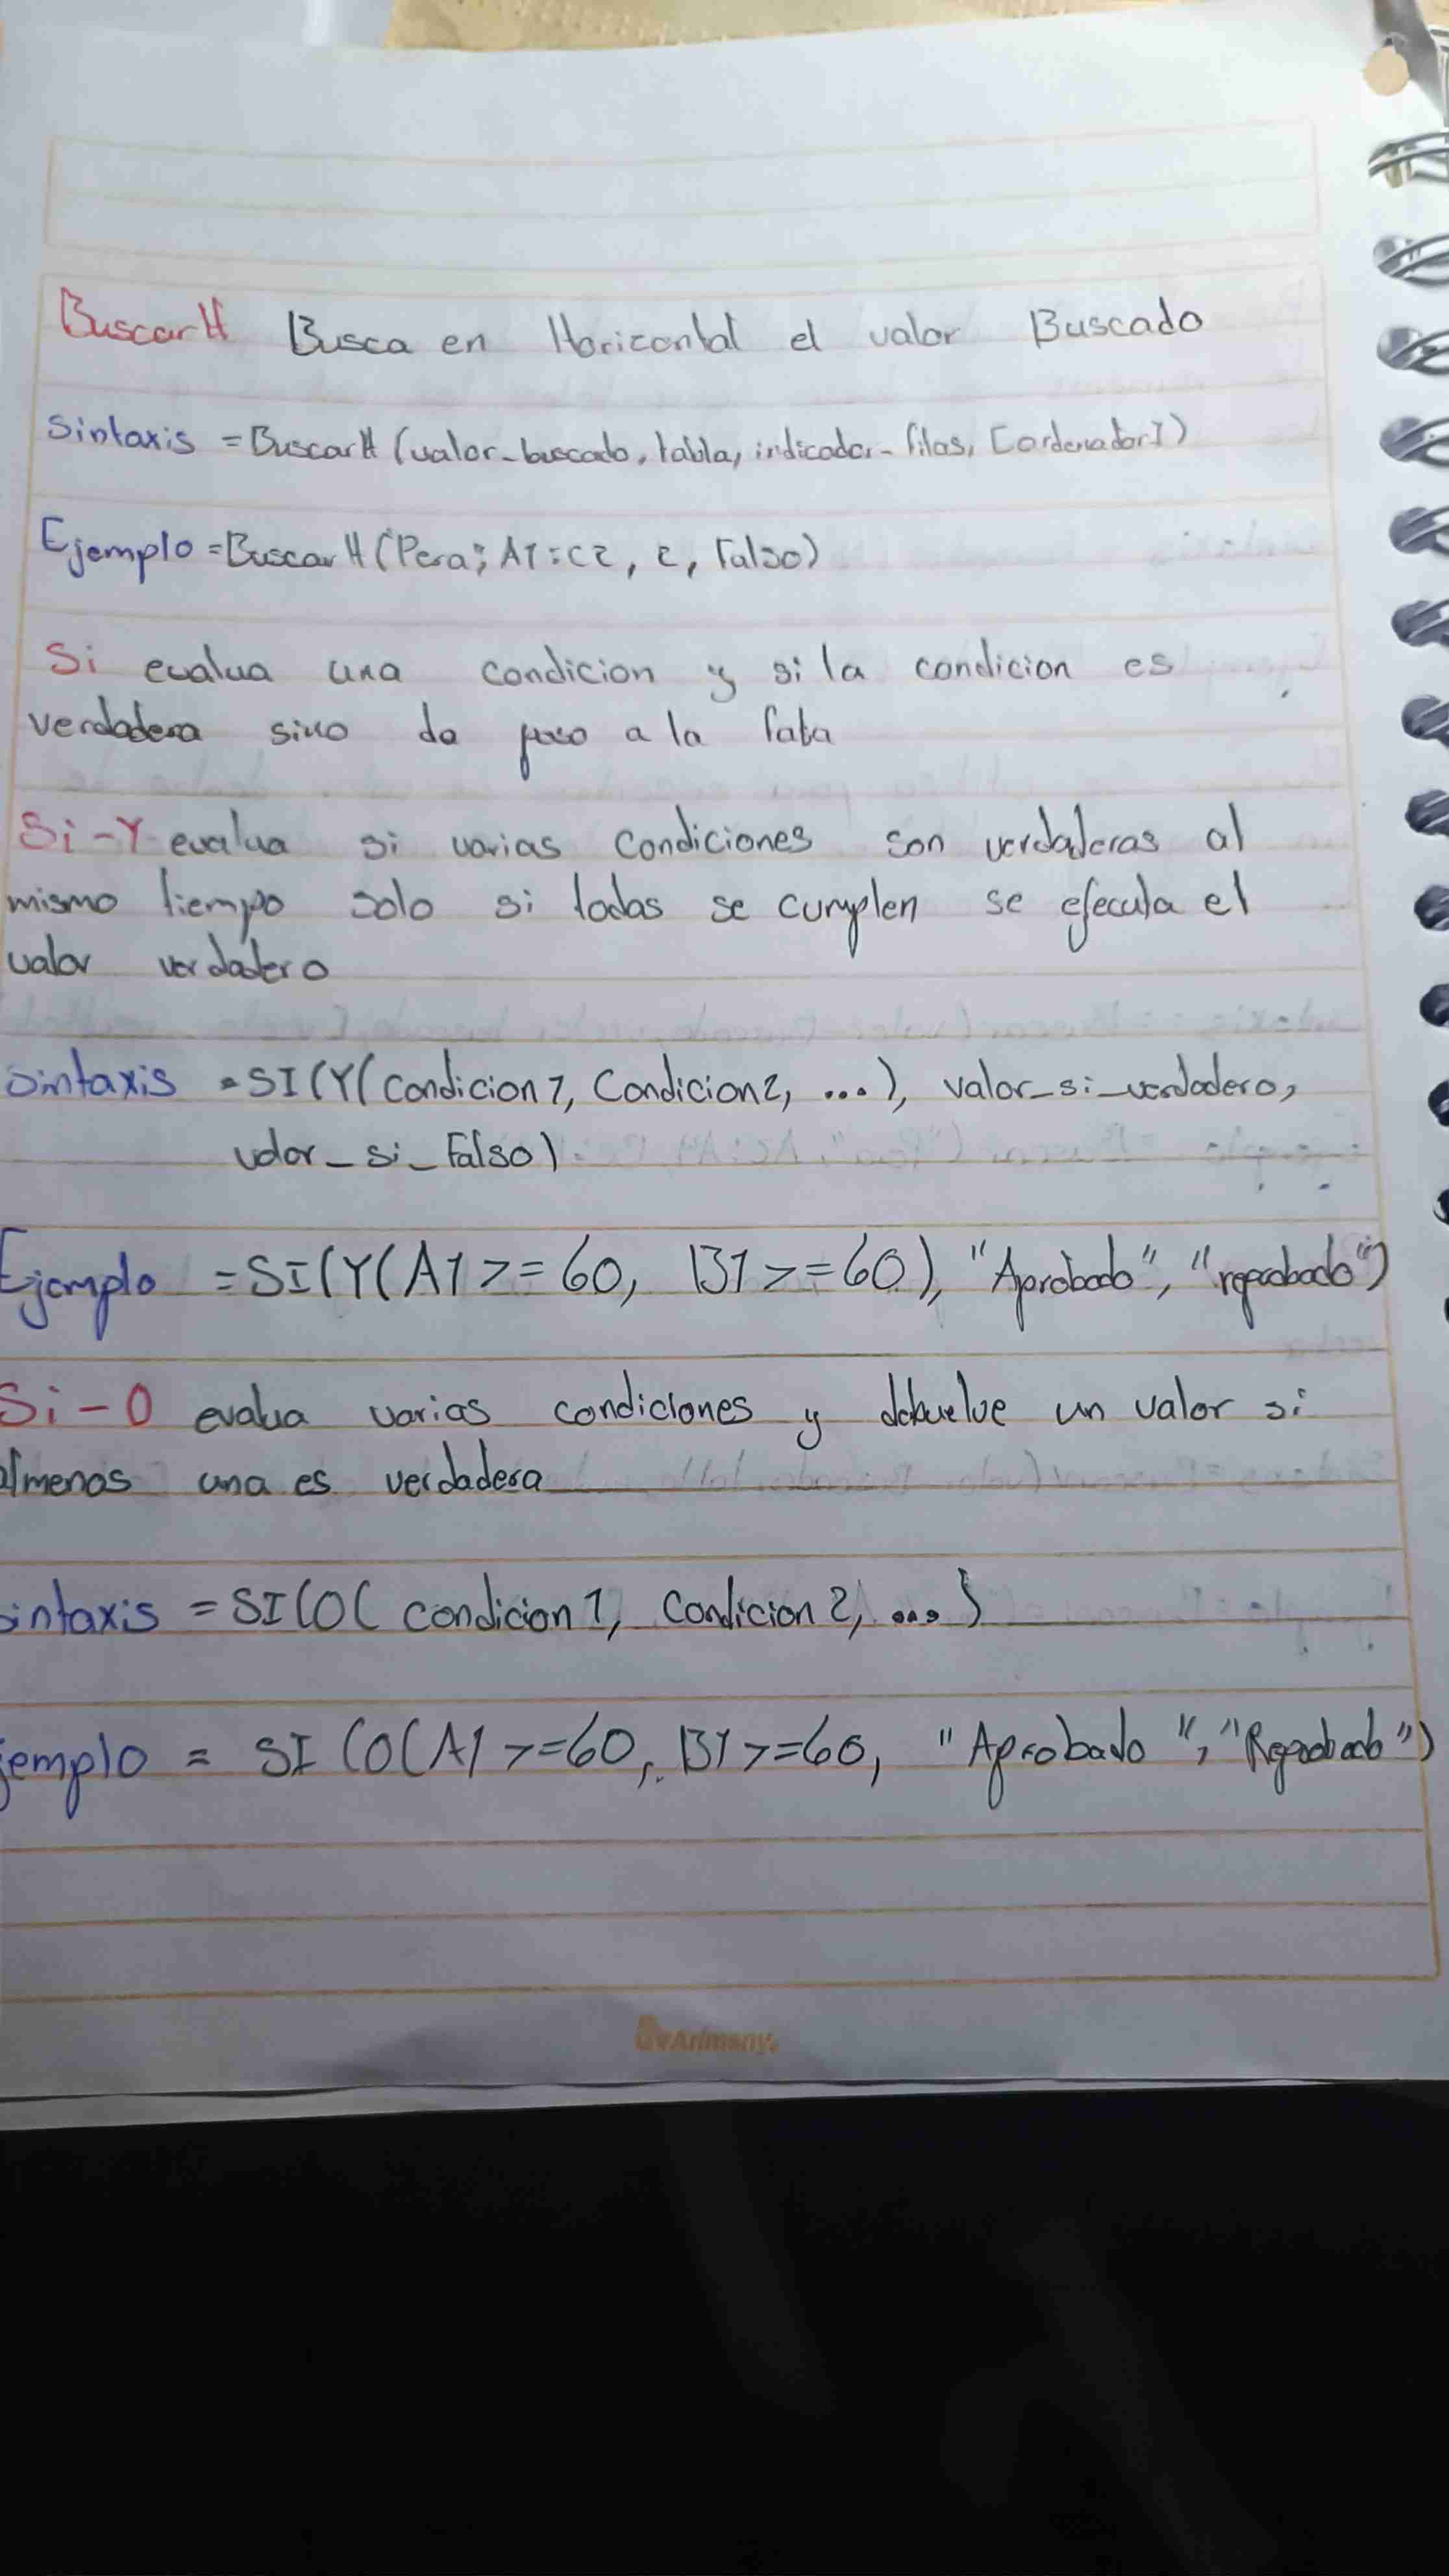 BuscarH Busca en Horizontal el valor Buscado
Sintaxis =BuscarH (valor_buscado, tabla, indicador_filas, [ordenador])
Ejemplo =BuscarH (Pera; A1:C2, 2, Falso)
Si evalua una condicion y si la condicion es
verdadera sino da paso a la
Si-Y evalua si varias condiciones son verdaderas al
mismo tiempo solo si todas se cumplen se efecuta el
valor verdadero
Sintaxis =SI(Y(condicion1, Condicion2, ...), valor_si_verdadero,
valor_si_Falso)
Ejemplo =SI(Y(A1>=60, B1>=60), "Aprobado", "reprobado")
Si-O evalua varias condiciones y debuelve un valor si
almenos una es verdadera
sintaxis =SI(O( condicion1, Condicion2, ...)
jemplo = SI(O(A1>=60, B1>=60, "Aprobado", "Reprobado")
Arimany